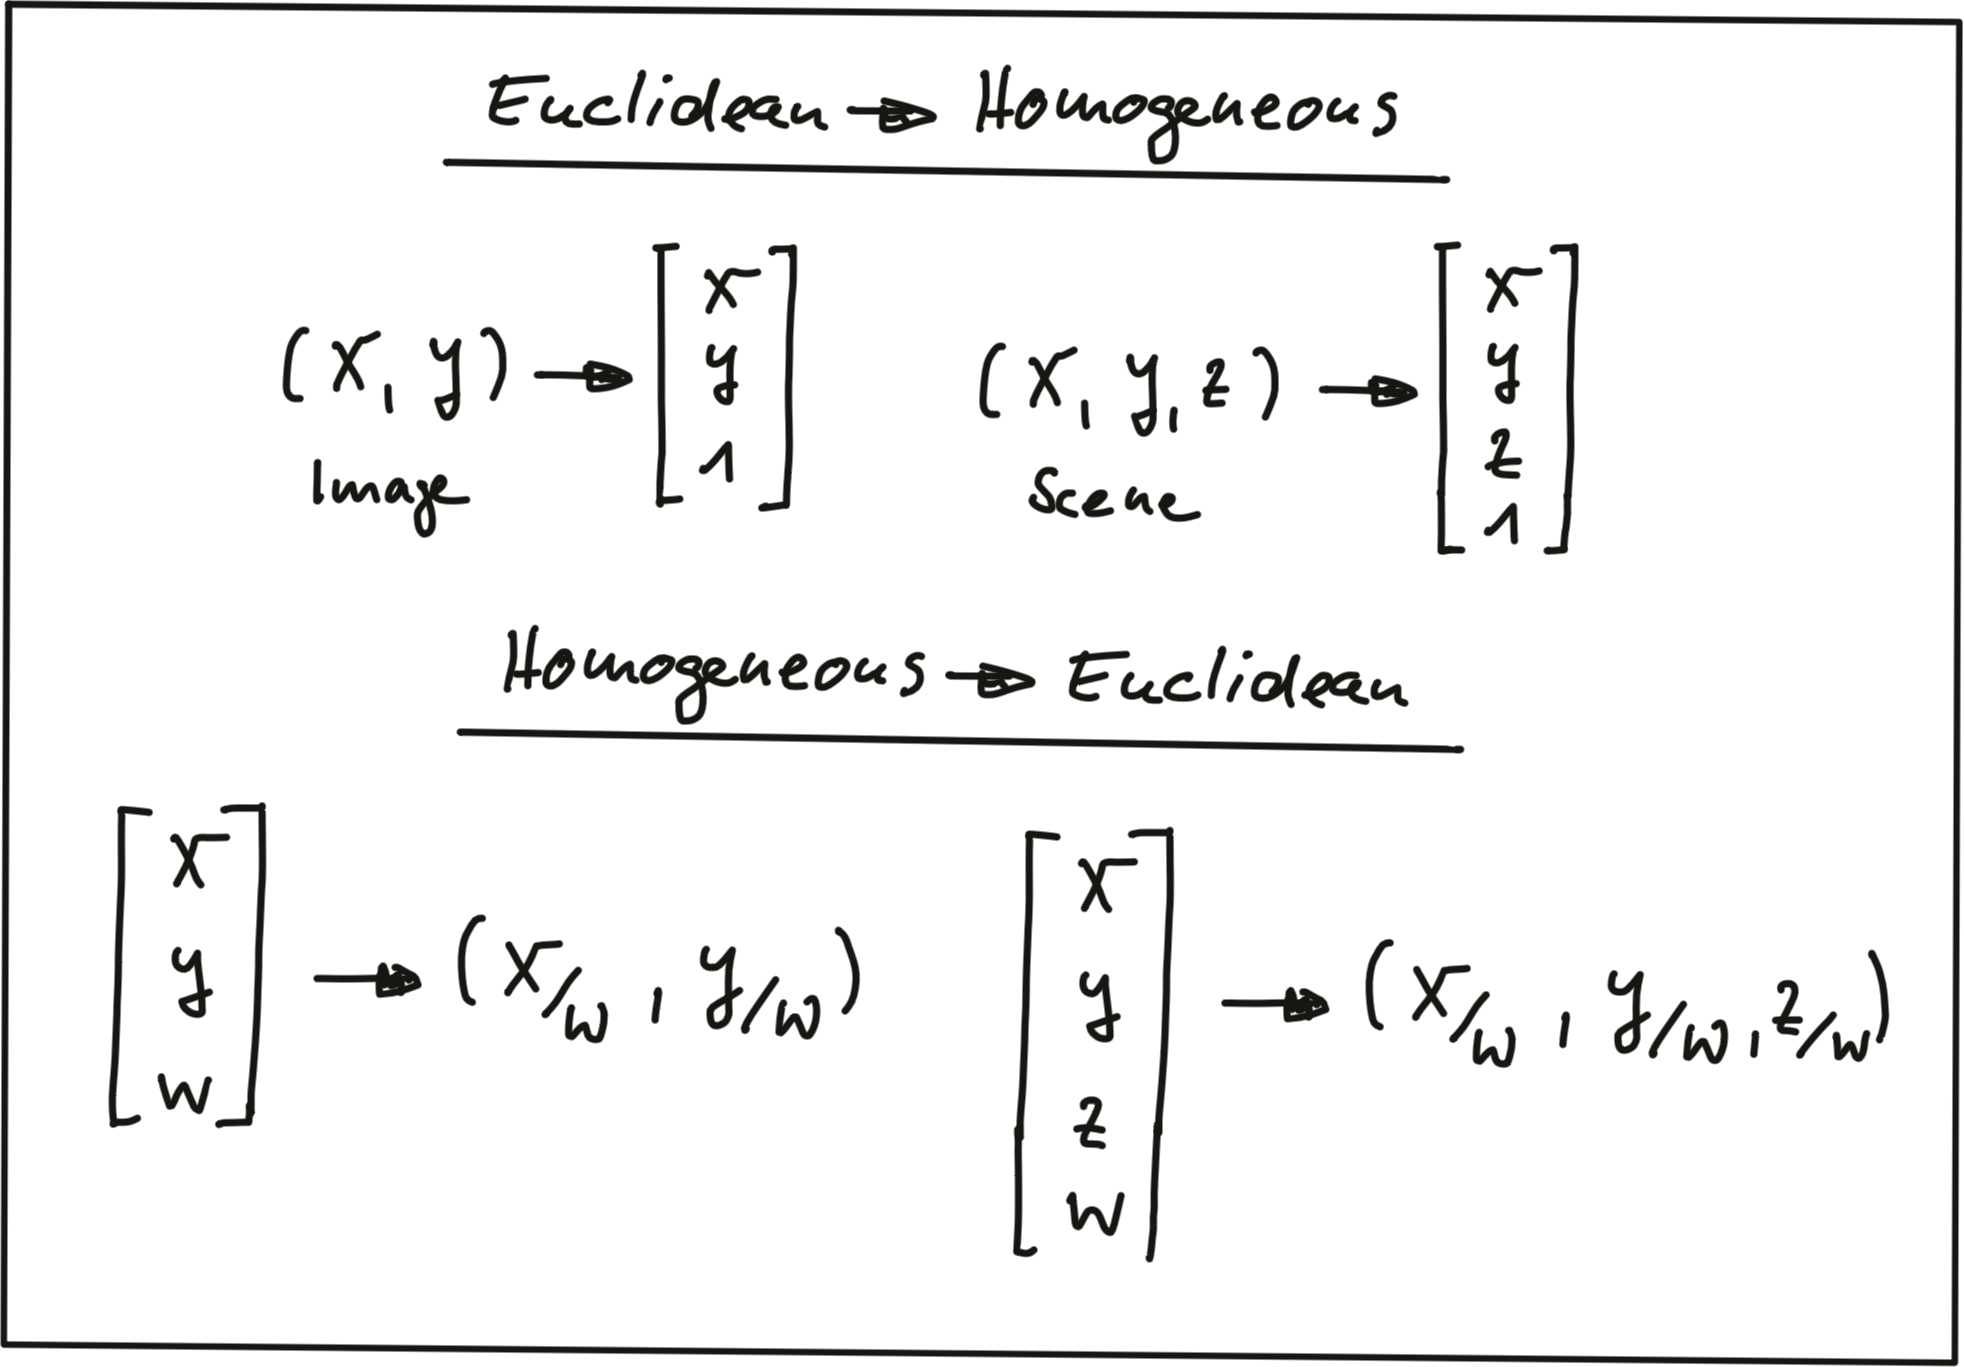 Euclidean → Homogeneous
(x, y) → [x y 1] (x, y, z) → [x y z 1]
Image Scene
Homogeneous → Euclidean
[x y w] → (x/w, y/w) [x y z w] → (x/w, y/w, z/w)